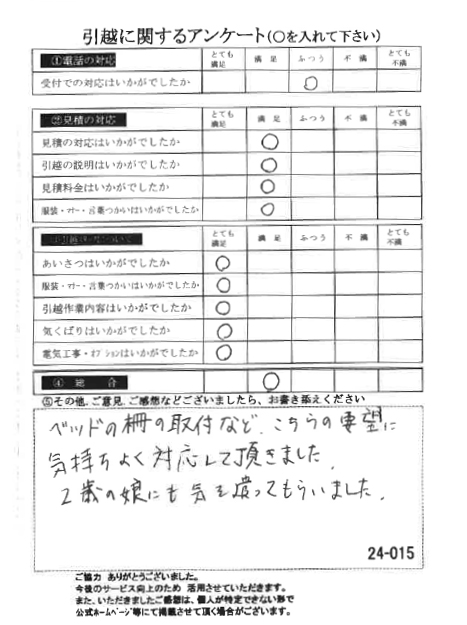 引越に関するアンケート(○を入れて下さい)
①電話の対応 とても満足 満足 ふつう 不満 とても不満
受付での対応はいかがでしたか ○
②見積の対応 とても満足 満足 ふつう 不満 とても不満
見積の対応はいかがでしたか ○
引越の説明はいかがでしたか ○
見積料金はいかがでしたか ○
服装・マナー・言葉つかいはいかがでしたか ○
とても満足 満足 ふつう 不満 とても不満
あいさつはいかがでしたか ○
服装・マナー・言葉つかいはいかがでしたか ○
引越作業内容はいかがでしたか ○
気くばりはいかがでしたか ○
電気工事・オプションはいかがでしたか ○
④総合 ○
⑤その他、ご意見、ご感想などございましたら、お書き添えください
ベッドの柵の取付など、こちらの要望に
気持ちよく対応して頂きました。
2歳の娘にも気を遣ってもらいました。
24-015
ご協力 ありがとうございました。
今後のサービス向上のため 活用させていただきます。
また、いただきましたご感想は、個人が特定できない形で
公式ホームページ等にて掲載させて頂く場合がございます。